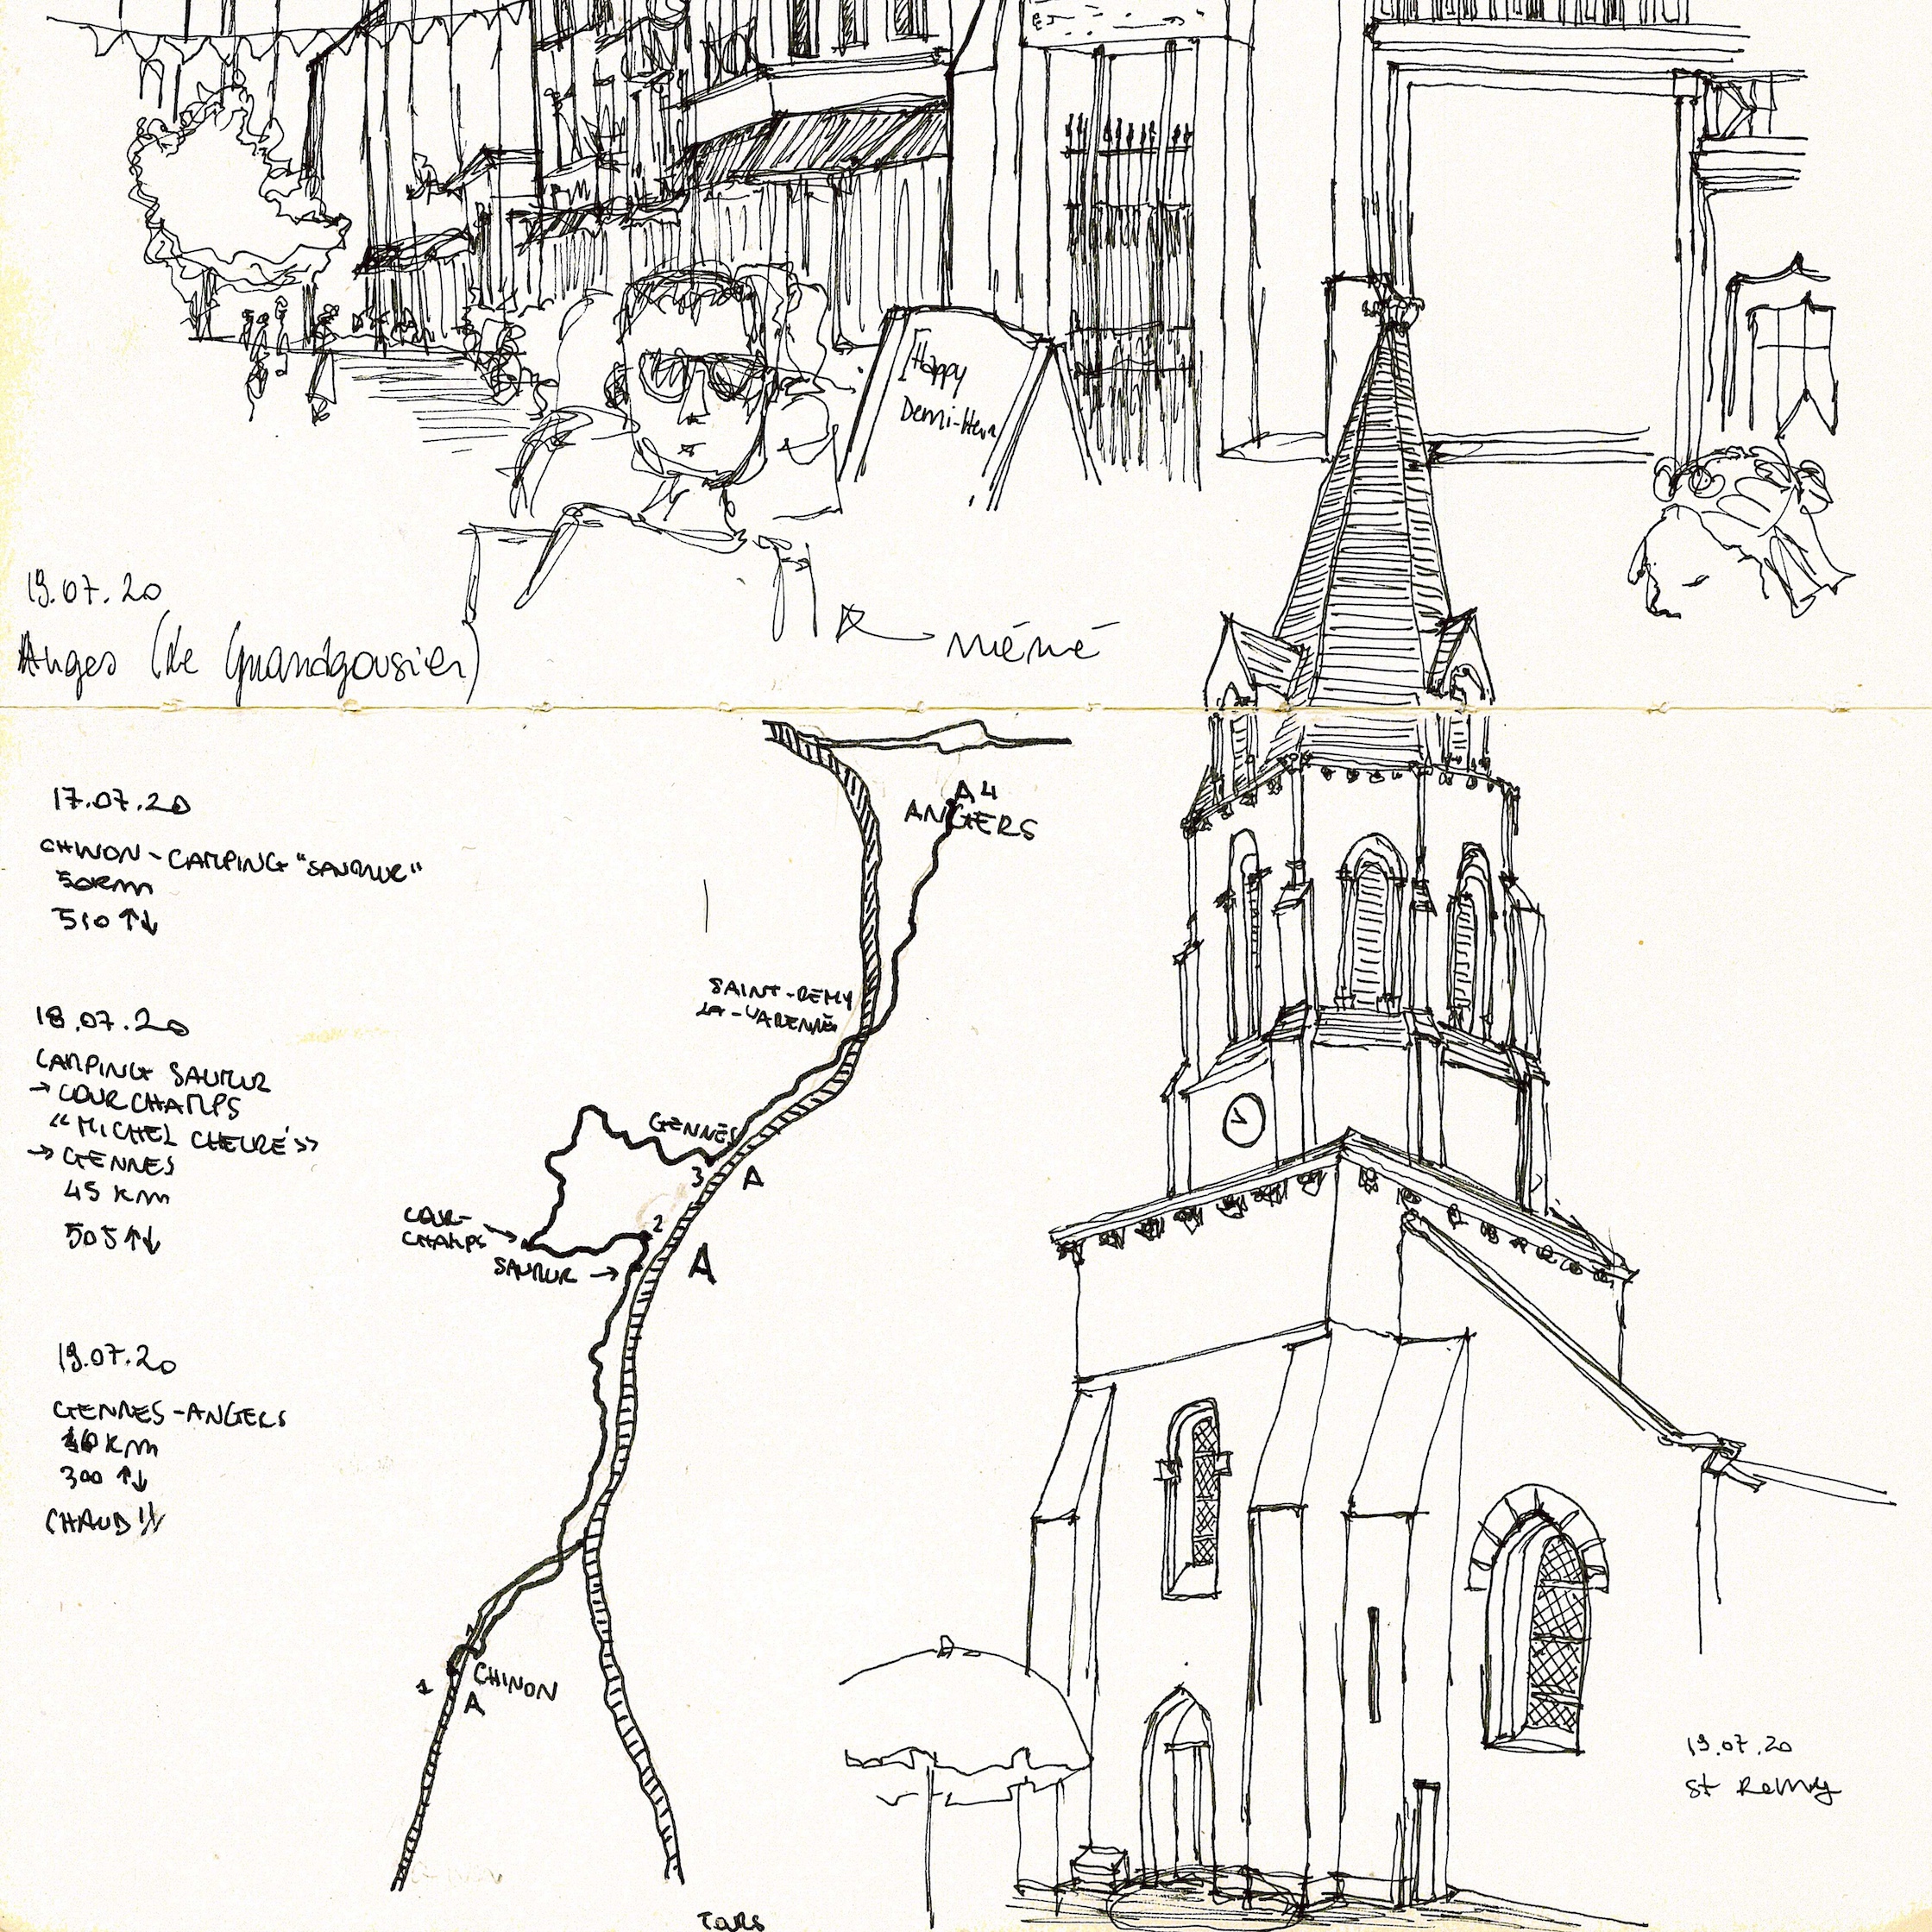 Happy
Demi-Heur
19.07.20
Anges (Le Grandgousier)
mémé
17.07.20
CHINON - CAMPING "SAUMUR"
50km
510 ↑↓
18.07.20
CAMPING SAUMUR
→ COURCHAMPS
"MICHEL CHEVRÉ"
→ GENNES
45 km
505 ↑↓
19.07.20
GENNES - ANGERS
km
300 ↑↓
CHAUD !!
A 4
ANGERS
SAINT-REMY
LA-VARENNE
GENNES
3 A
COUR-
CHAMPS
2
SAUMUR →
A
1 CHINON
A
TOURS
19.07.20
St Remy